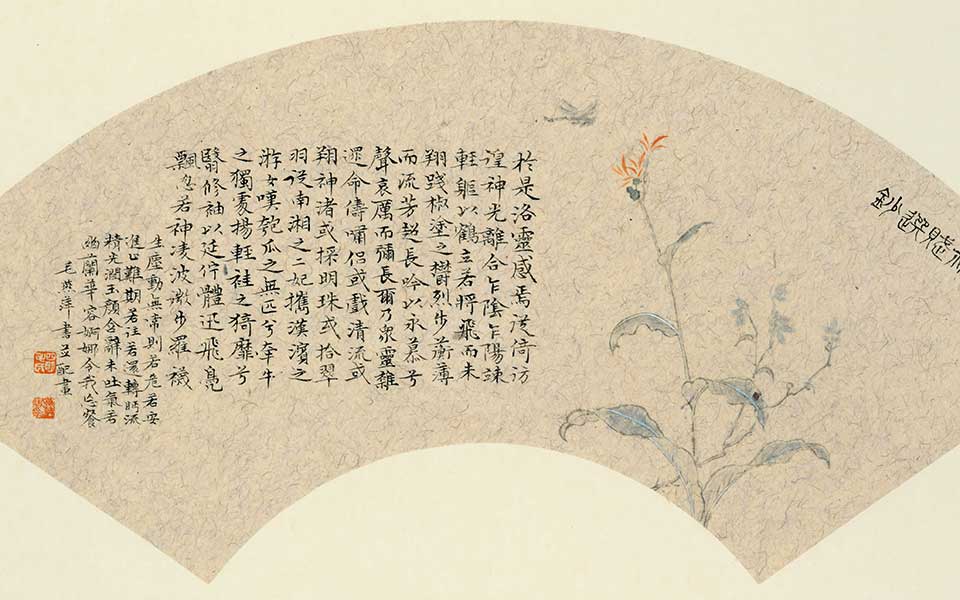 賦譔鈔
於是洛靈感焉徙倚彷
徨神光離合乍陰乍陽竦
輕軀以鶴立若將飛而未
翔踐椒塗之鬱烈步蘅薄
而流芳超長吟以永慕兮
聲哀厲而彌長爾乃眾靈雜
遝命儔嘯侶或戲清流或
翔神渚或採明珠或拾翠
羽從南湘之二妃攜漢濱之
游女嘆匏瓜之無匹兮牽牛
之獨處揚輕袿之猗靡兮
翳修袖以延佇體迅飛鳧
飄忽若神凌波微步羅襪
生塵動無常則若危若安
進止難期若往若還轉眄流
精光潤玉顏含辭未吐氣若
幽蘭華容婀娜令我忘餐
毛燕萍書並配畫